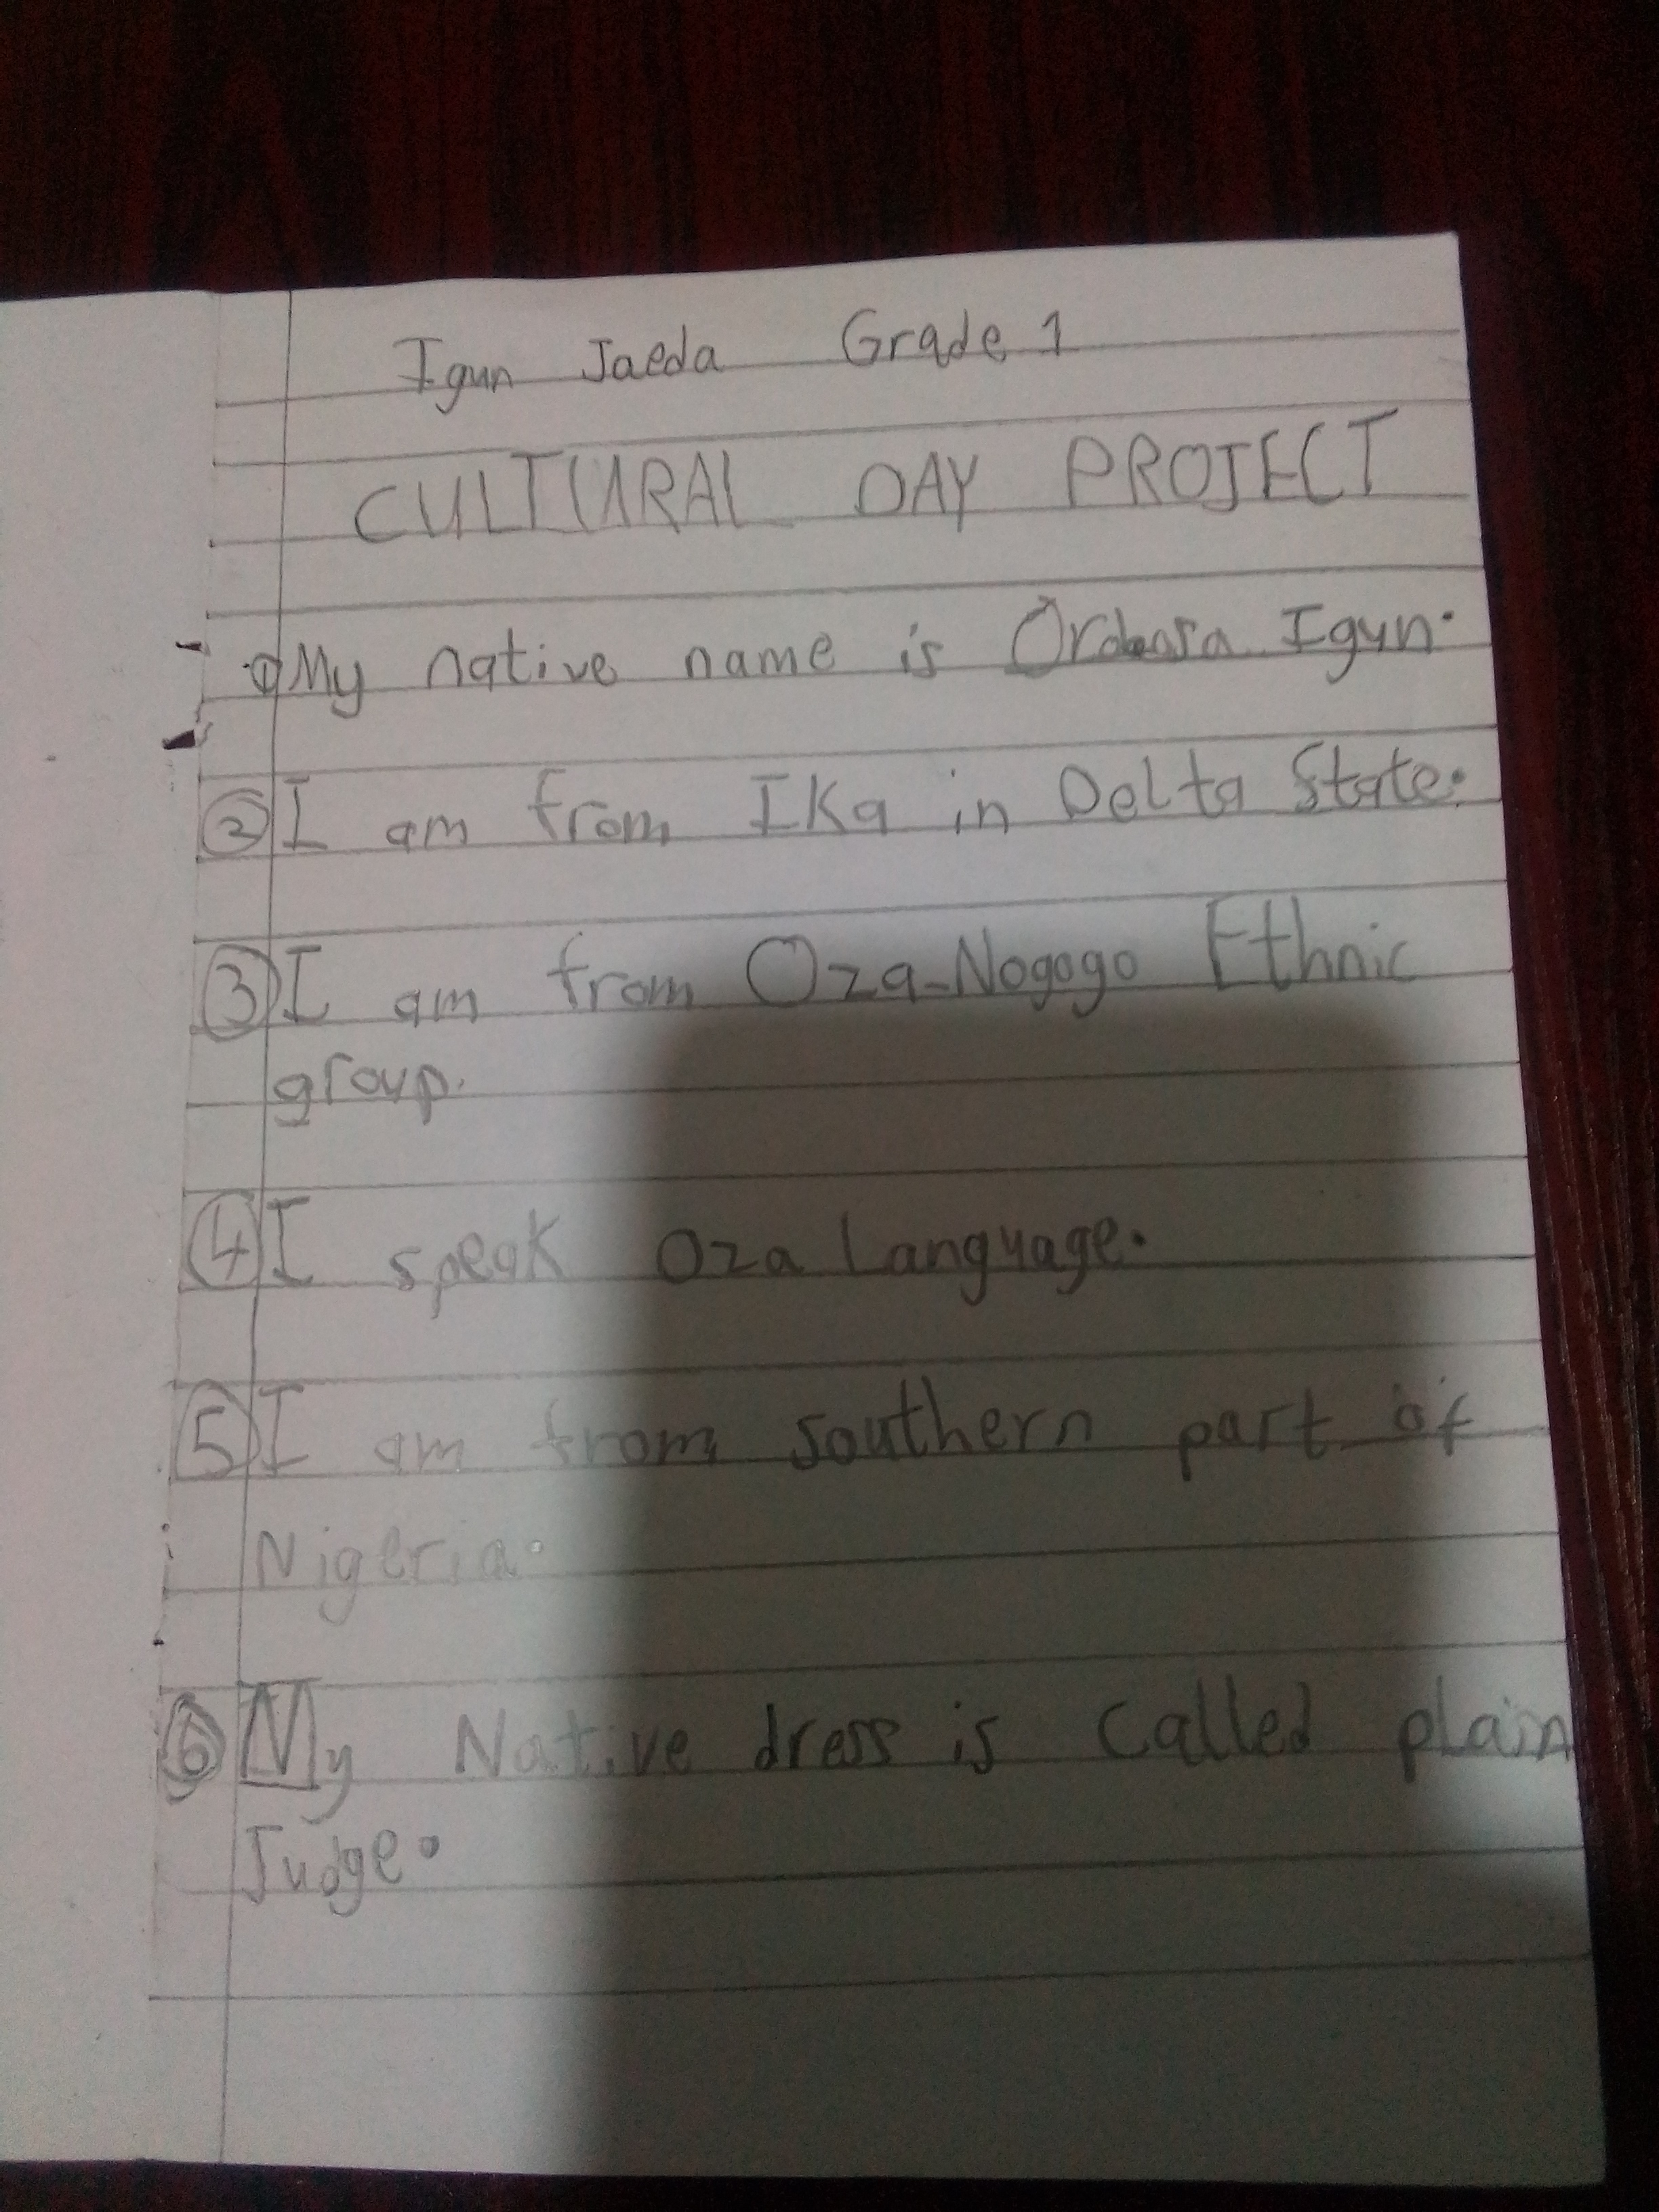 Igun Jaeda Grade 1
CULTURAL DAY PROJECT
① My native name is Igun.
② I am from Ika in Delta State.
③ I am from Oza-Nogogo Ethnic
group.
④ I speak Oza Language.
⑤ I am from southern part of
Nigeria.
⑥ My Native dress is called plain
Judge.